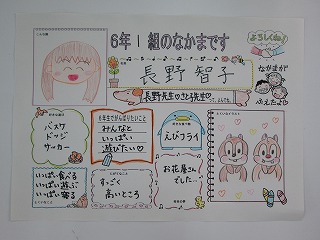 6年1組のなかまです
よろしくね!
長野 智子
なかまが
ふえたよ
長野先生♡
って、よんでね。
バスケ
ドッジ
サッカー
6年生でがんばりたいこと
みんなと
いっぱい
遊びたい♡
えびフライ
いっぱい食べる
いっぱい遊ぶ
いっぱい寝る
すっごく
高いところ
お花屋さん
でした…